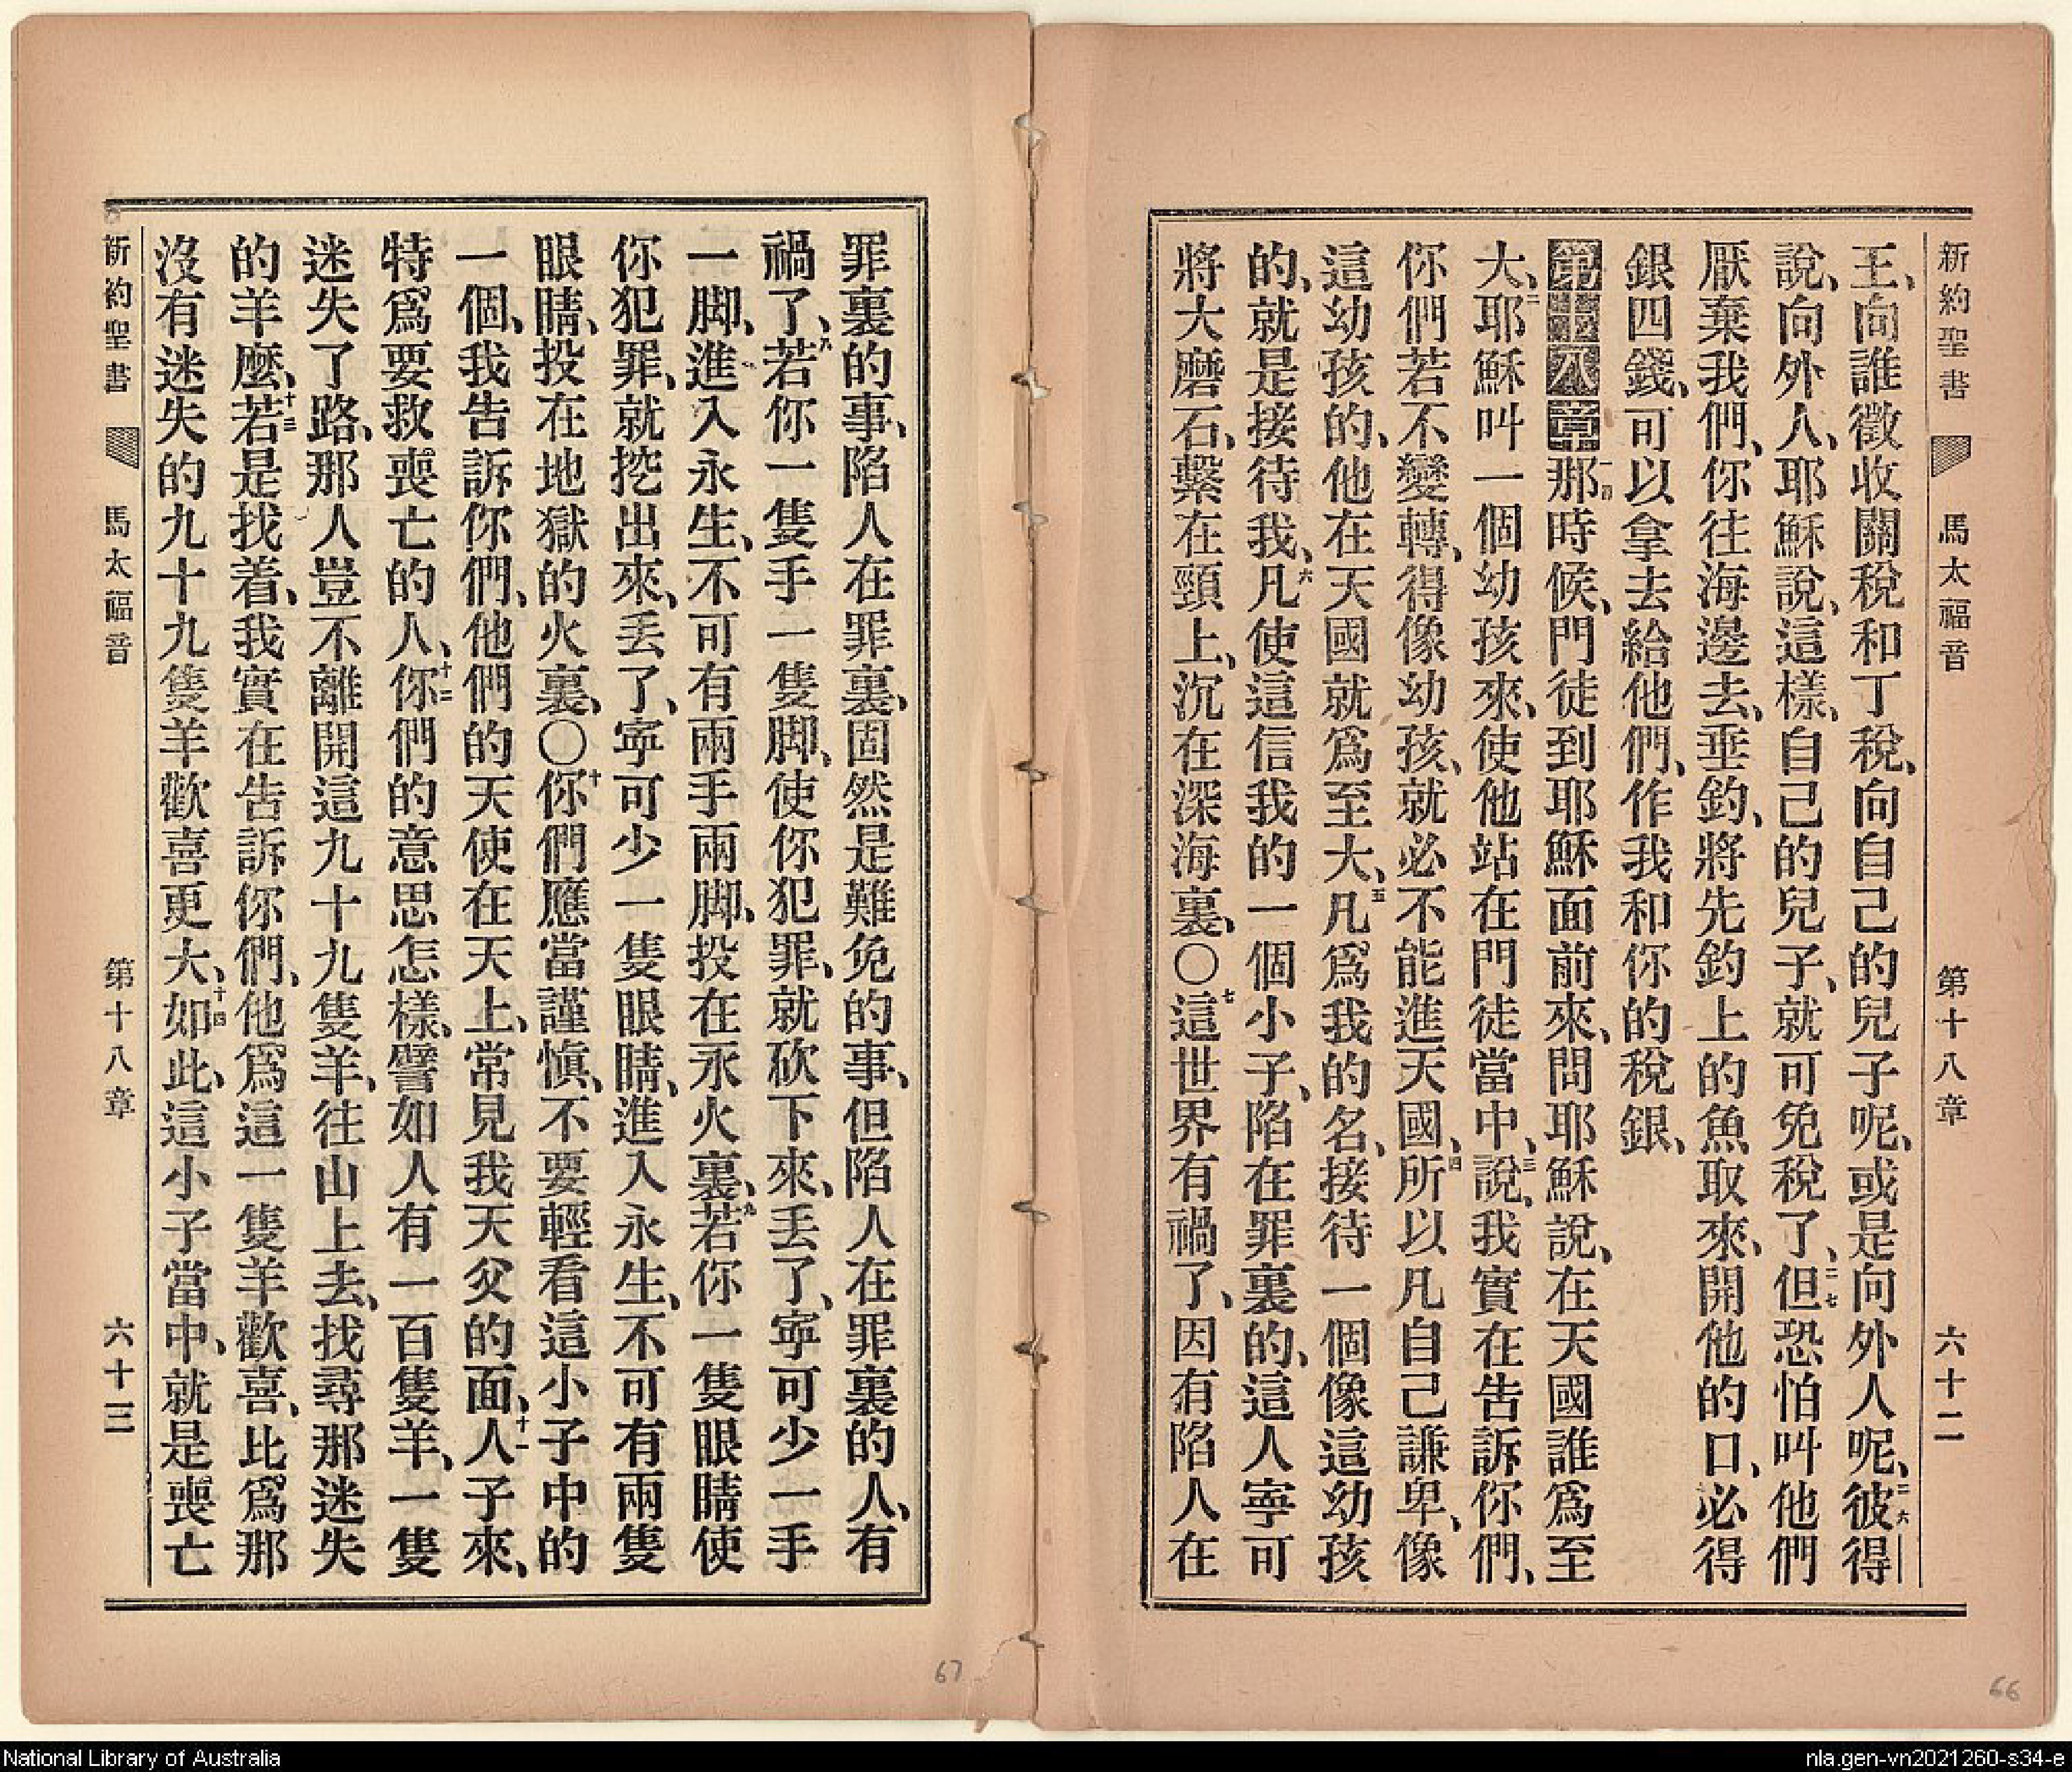 新約聖書 馬太福音 第十八章 六十二
王、向誰徵收關稅和丁稅、向自己的兒子呢、或是向外人呢、二六彼得
說、向外人、耶穌說、這樣、自己的兒子、就可免稅了、二七但恐怕叫他們
厭棄我們、你往海邊去、垂釣、將先釣上的魚取來、開他的口、必得
銀四錢、可以拿去給他們、作我和你的稅銀、
第十八章一四那時候、門徒到耶穌面前來、問耶穌說、在天國誰爲至
大、二耶穌叫一個幼孩來、使他站在門徒當中、三說、我實在告訴你們、
你們若不變轉、得像幼孩、就必不能進天國、四所以凡自己謙卑、像
這幼孩的、他在天國就爲至大、五凡爲我的名、接待一個像這幼孩
的、就是接待我、六凡使這信我的一個小子、陷在罪裏的、這人寧可
將大磨石、繫在頸上、沉在深海裏、〇七這世界有禍了、因有陷人在
罪裏的事、陷人在罪裏、固然是難免的事、但陷人在罪裏的人、有
禍了、八若你一隻手一隻脚、使你犯罪、就砍下來、丟了、寧可少一手
一脚、進入永生、不可有兩手兩脚、投在永火裏、九若你一隻眼睛使
你犯罪、就挖出來、丟了、寧可少一隻眼睛、進入永生、不可有兩隻
眼睛、投在地獄的火裏、〇十你們應當謹慎、不要輕看這小子中的
一個、我告訴你們、他們的天使在天上、常見我天父的面、十一人子來、
特爲要救喪亡的人、十二你們的意思怎樣、譬如人有一百隻羊、一隻
迷失了路、那人豈不離開這九十九隻羊、往山上去、找尋那迷失
的羊麼、十三若是找着、我實在告訴你們、他爲這一隻羊歡喜、比爲那
沒有迷失的九十九隻羊歡喜更大、十四如此、這小子當中、就是喪亡
新約聖書 馬太福音 第十八章 六十三
67
66
National Library of Australia
nla.gen-vn2021260-s34-e